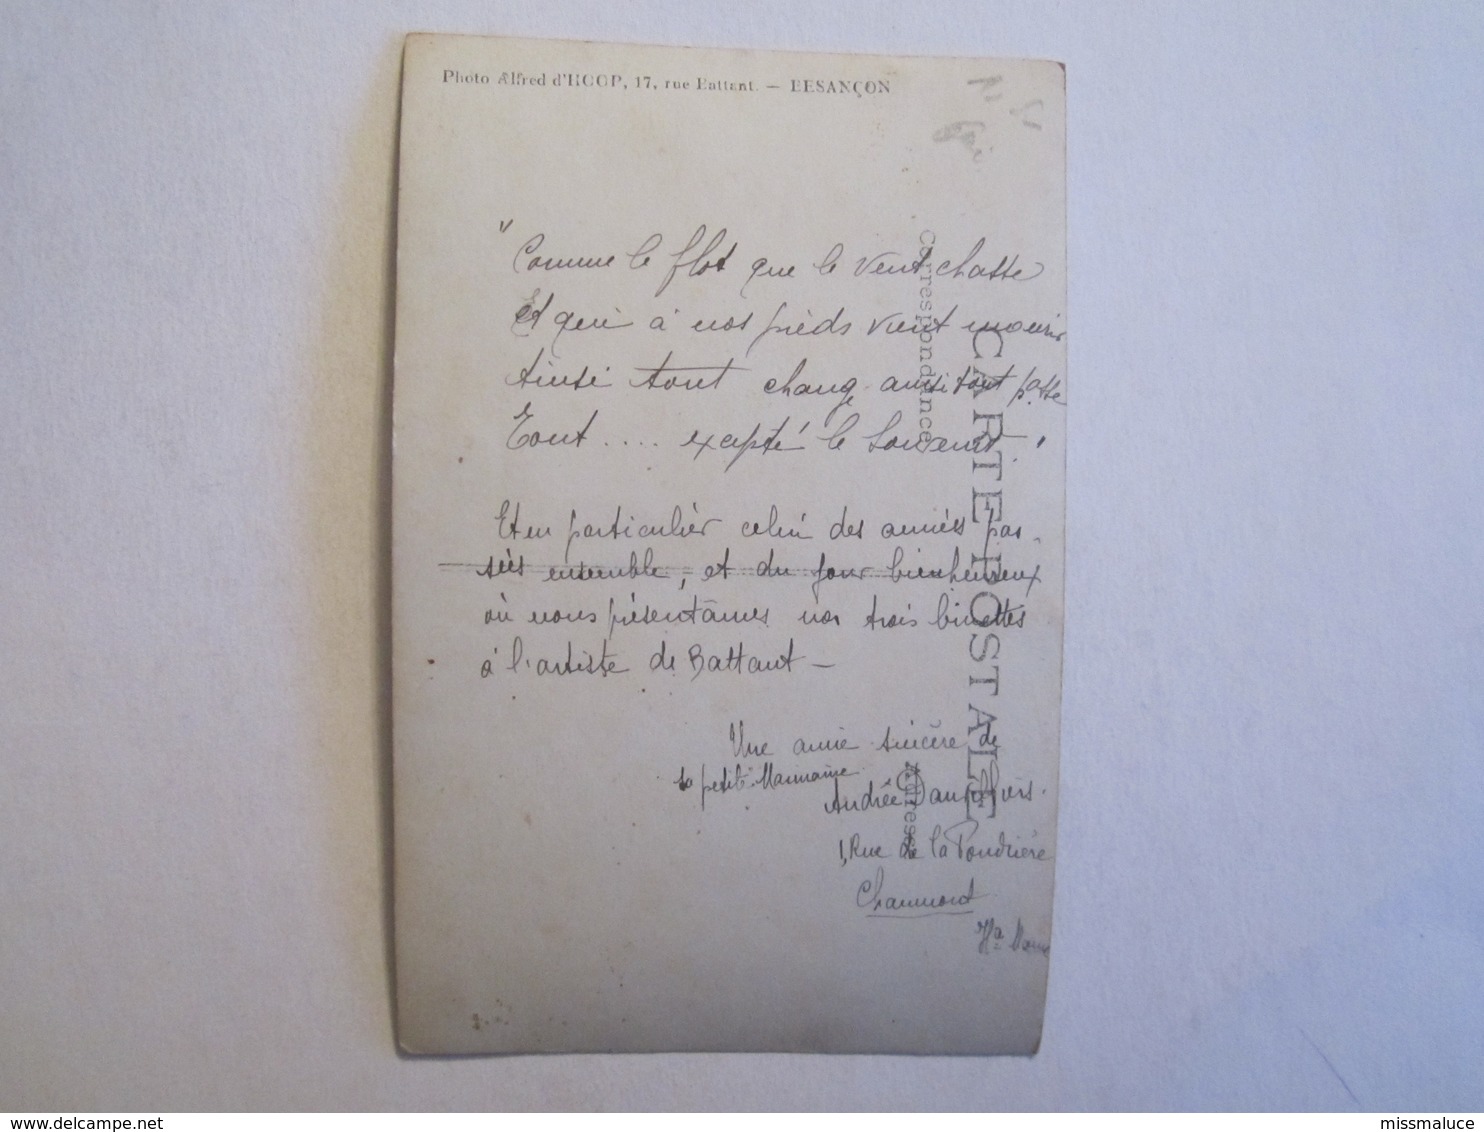 Photo Alfred d'HOOP, 17, rue Battant. — BESANÇON
CARTE POSTALE
Correspondance
Adresse
" Comme le flot que le vent chasse
Et qui à nos pieds vient mourir
Ainsi tout change ainsi tout passe
Tout .... excepté le Souvenir "
Et en particulier celui des années pas-
sées ensemble, et du jour bienheureux
où nous présentâmes nos trois binettes
à l'artiste de Battant —
Une amie sincère de
sa petite Marraine
Andrée
1, Rue de la Poudrière
Chaumont
Hte Marne
www.delcampe.net
missmaluce